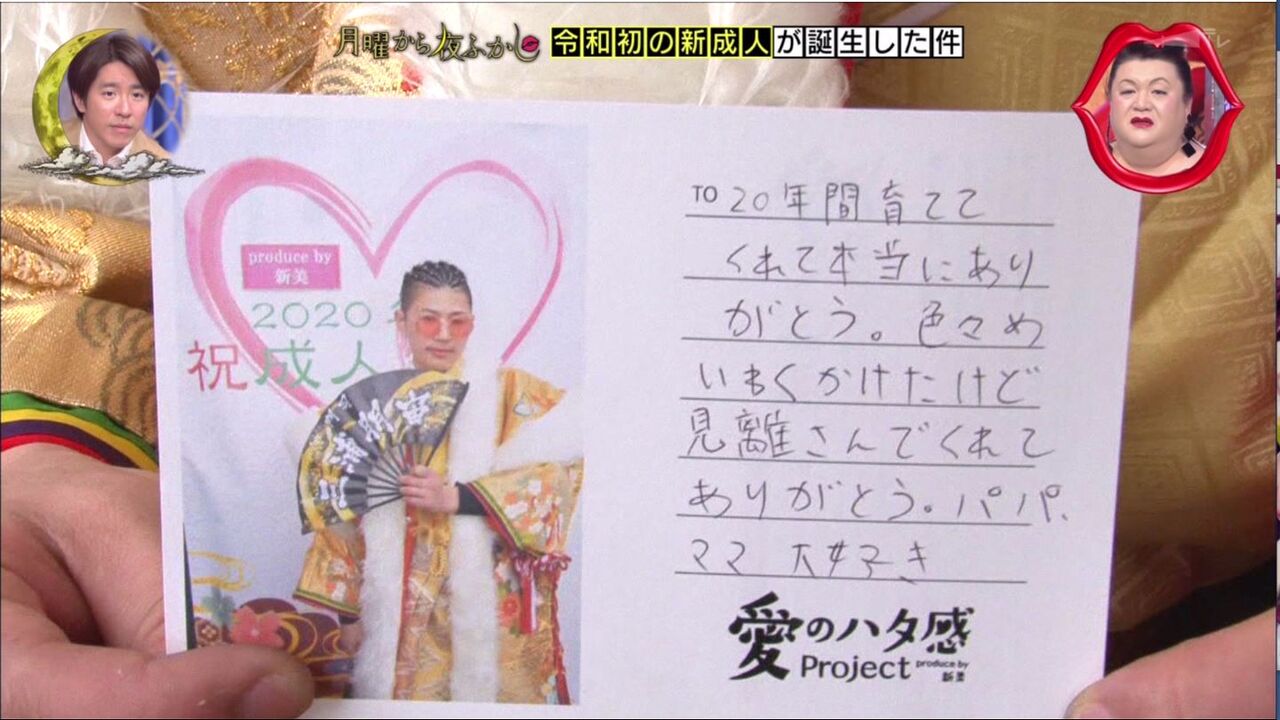 月曜から夜ふかし
令和初の新成人が誕生した件
produce by
新美
2020
祝成人
TO 20年間育てて
くれて本当にあり
がとう。色々め
いわくかけたけど
見離さんでくれて
ありがとう。パパ、
ママ 大好き
愛のハタ感
Project produce by
新美